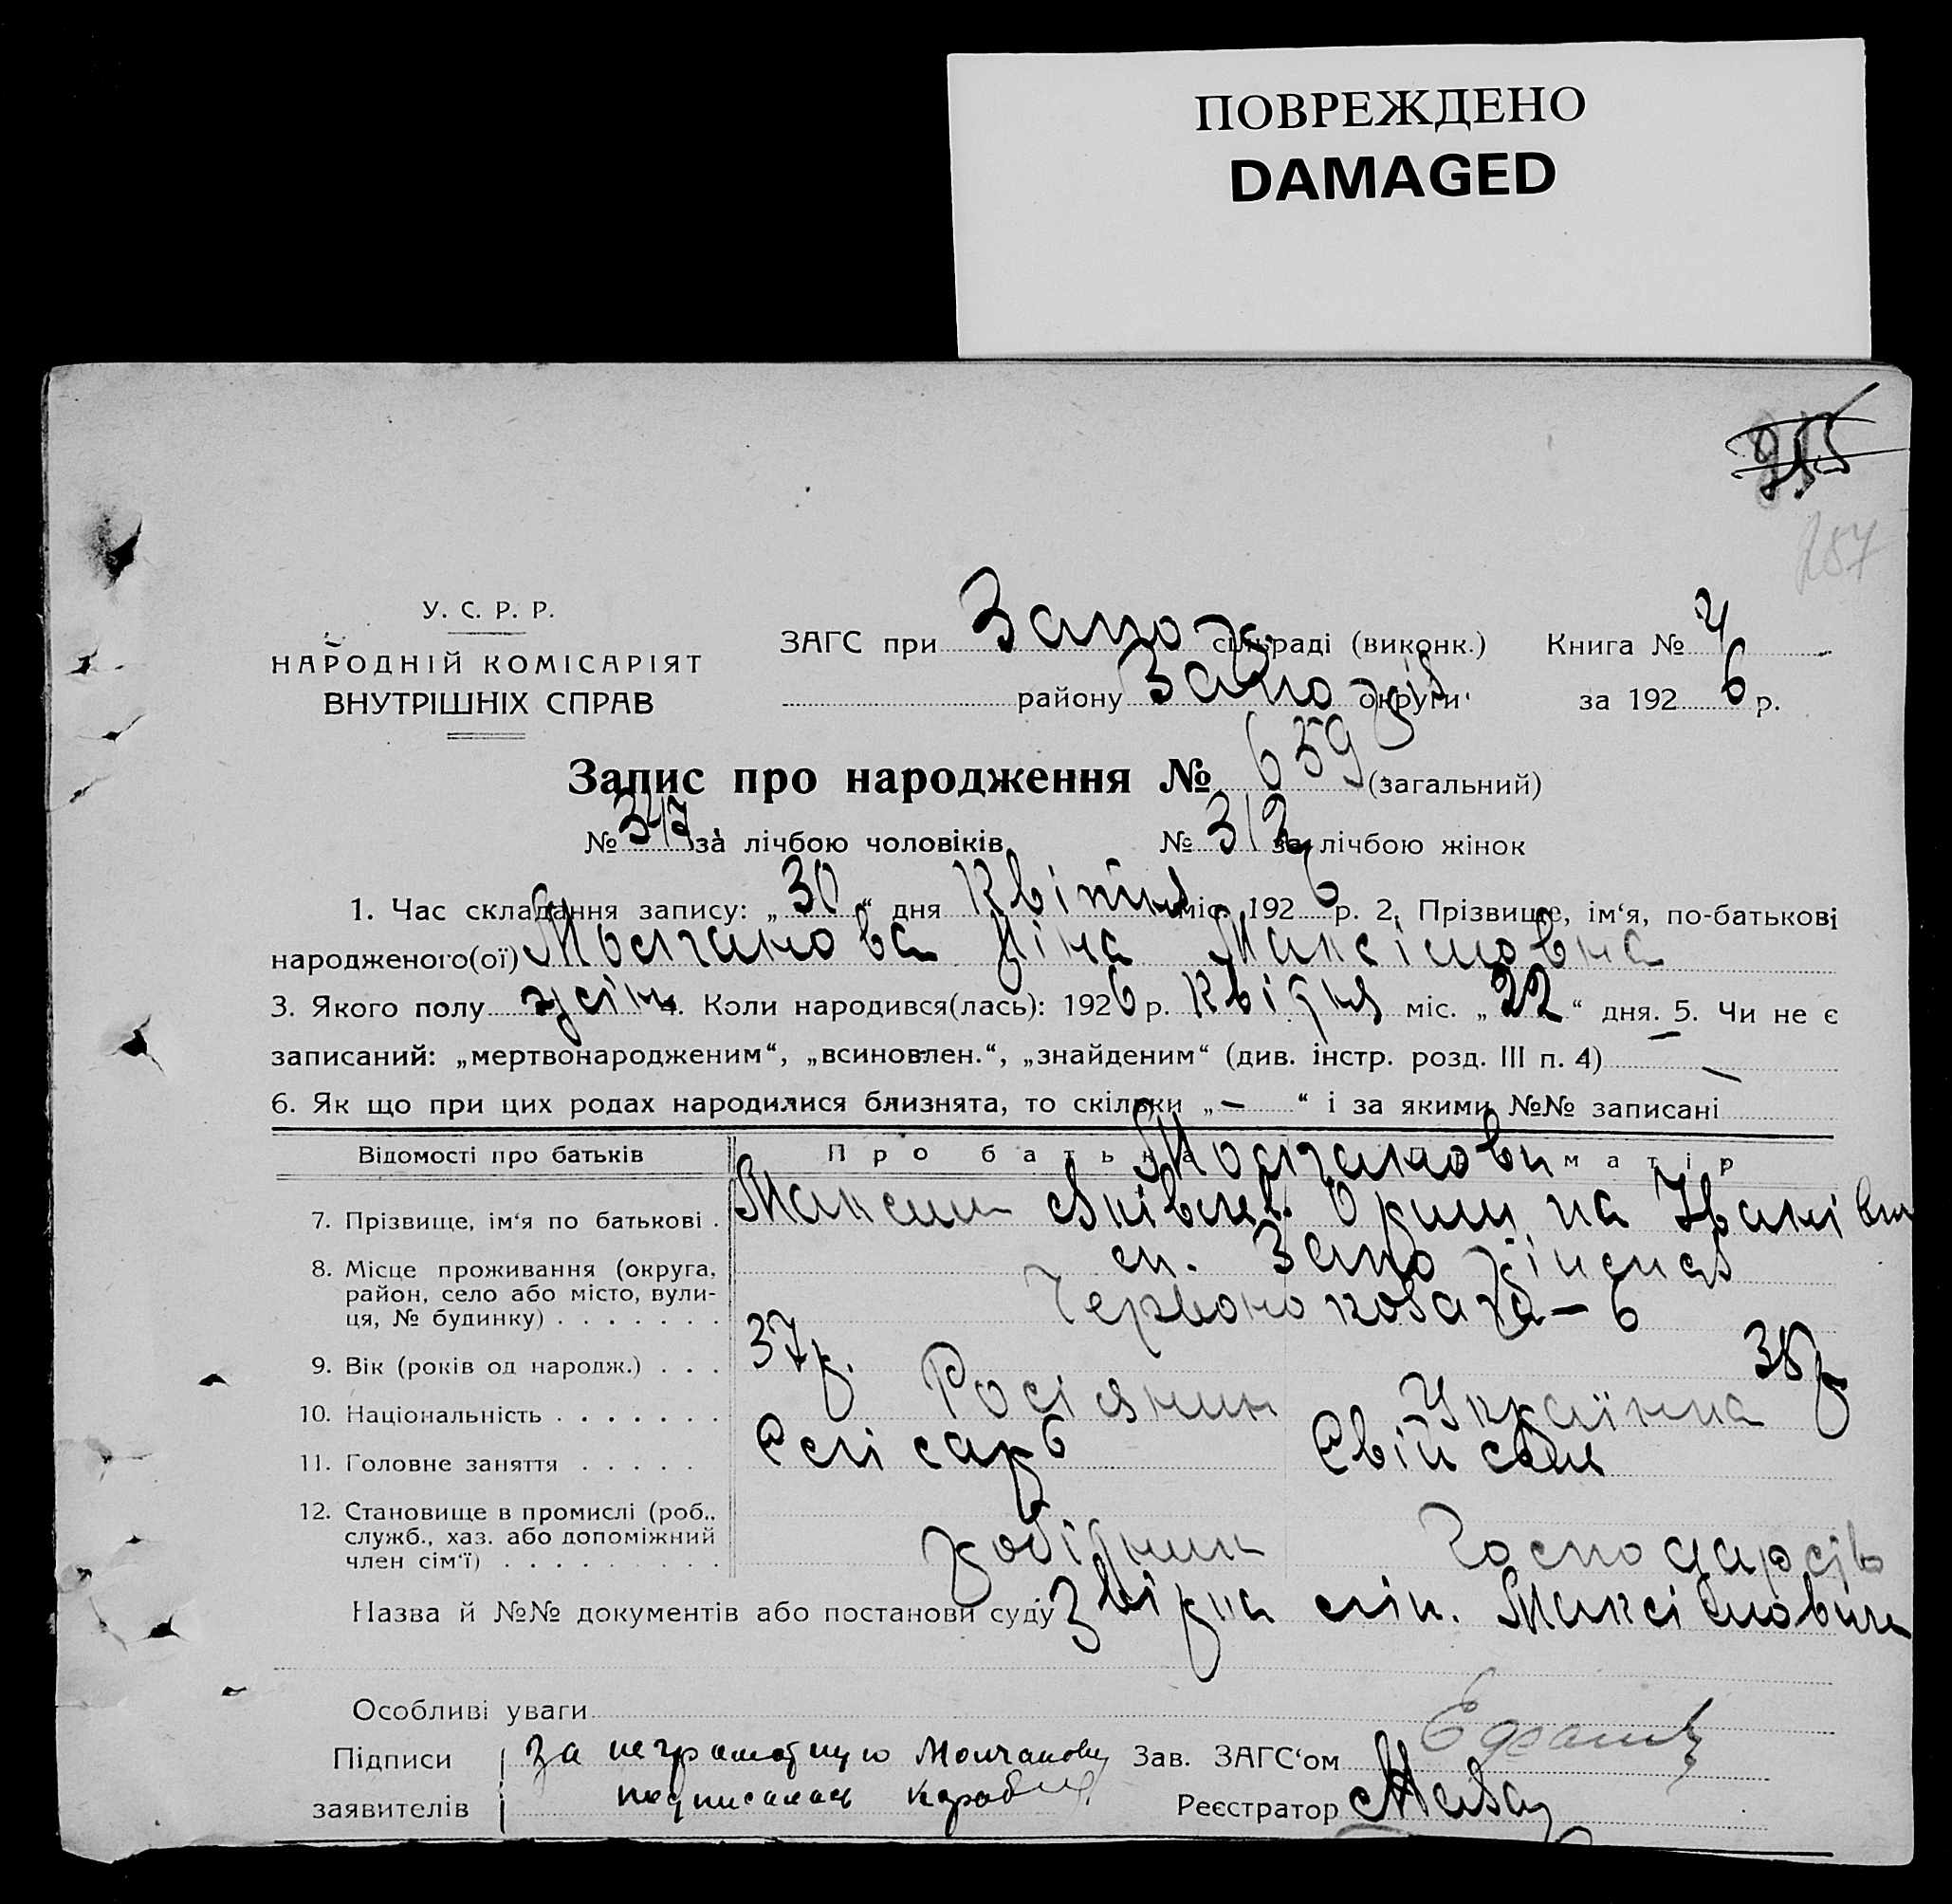 ПОВРЕЖДЕНО
DAMAGED
257
У. С. Р. Р.
НАРОДНІЙ КОМІСАРІЯТ
ВНУТРІШНІХ СПРАВ
ЗАГС при Запоріж сільраді (виконк.) Книга № 4
району Запоріж округи за 1926 р.
Запис про народження № 659 (загальний)
№ 347 за лічбою чоловіків № 312 за лічбою жінок
1. Час складання запису: „30“ дня Квітня міс. 1926 р. 2. Прізвище, ім‘я, по-батькові
народженого(ої) Молчанова Ніна Максімовна
3. Якого полу жін 4. Коли народився(лась): 1926 р. Квітня міс. „22“ дня. 5. Чи не є
записаний: „мертвонародженим“, „всиновлен.“, „знайденим“ (див. інстр. розд. III п. 4) —
6. Як що при цих родах народилися близнята, то скільки „—“ і за якими №№ записані
Відомості про батьків Про батька Про матір
Молчанови
7. Прізвище, ім‘я по батькові . Максим Яківлев. Оришка Іванівна
8. Місце проживання (округа, район, село або місто, вулиця, № будинку) . . . . . . .
Червоно козача — 6
9. Вік (років од народж.) . . . 37 р. 38 р
10. Національність . . . . . . . Росіянин Українка
11. Головне заняття . . . . . Слісарь
12. Становище в промислі (роб., служб., хаз. або допоміжний член сім‘ї) . . . . . . . . . робітник Господарств
Назва й №№ документів або постанови суду Звірка Максімовича
Особливі уваги
Підписи за неграмотную Молчанову Зав. ЗАГС‘ом
заявителів подписалась Реєстратор